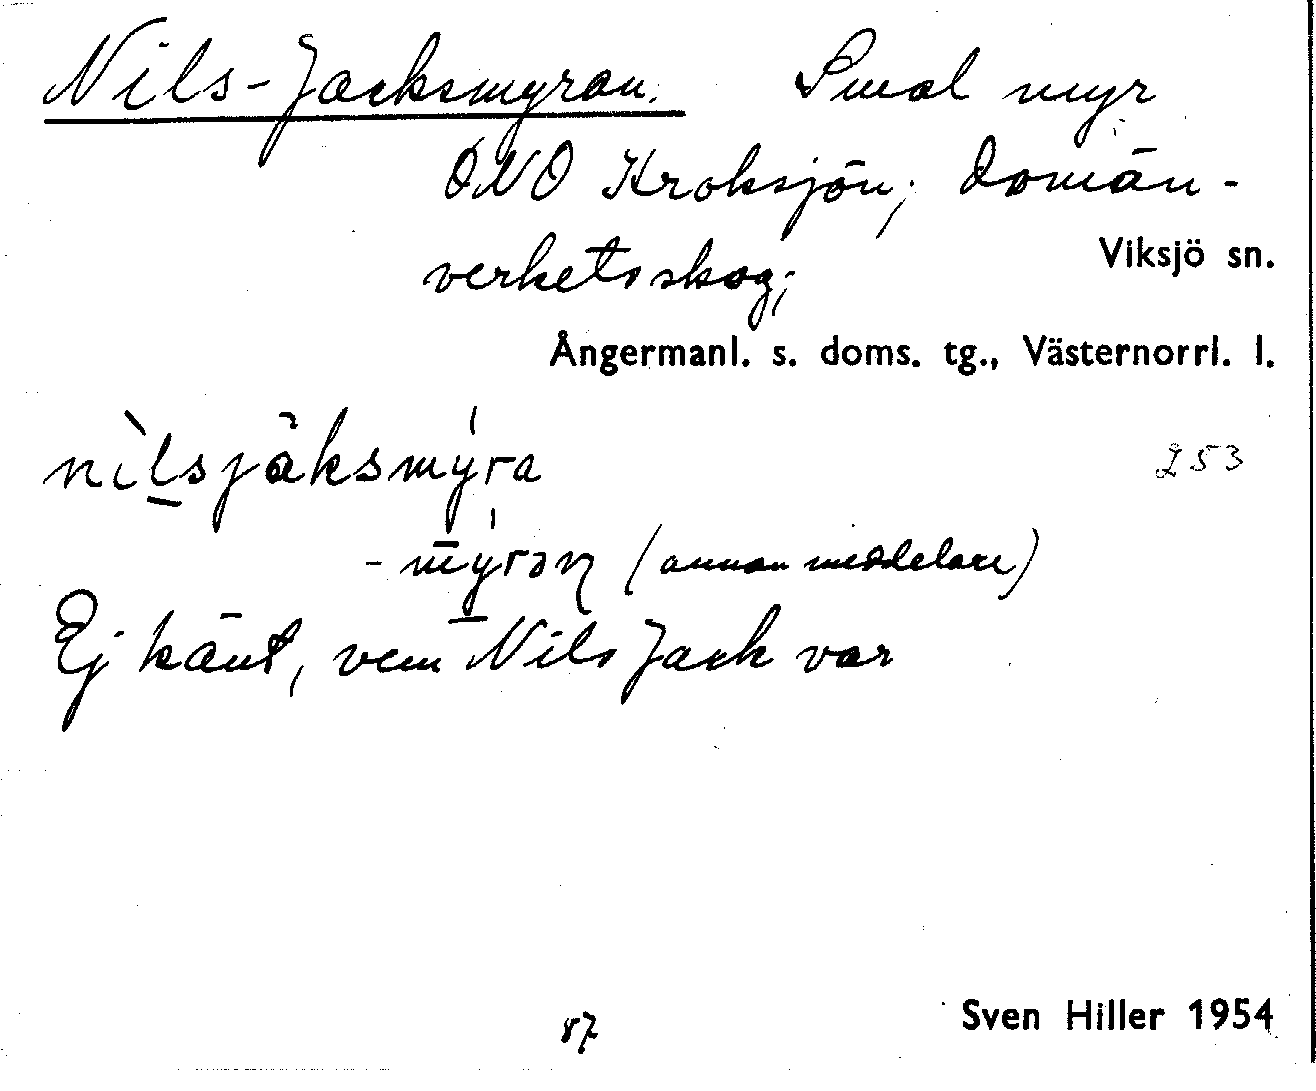 Nils-Jacksmyran. Smal myr
ONO Kroksjön; domän-
verketsskog;
Viksjö sn.
Ångermanl. s. doms. tg., Västernorrl. l.
nìlsjäksmýra
253
-mýrən (annan meddelare)
Ej känt, vem Nils Jack var
87
Sven Hiller 1954